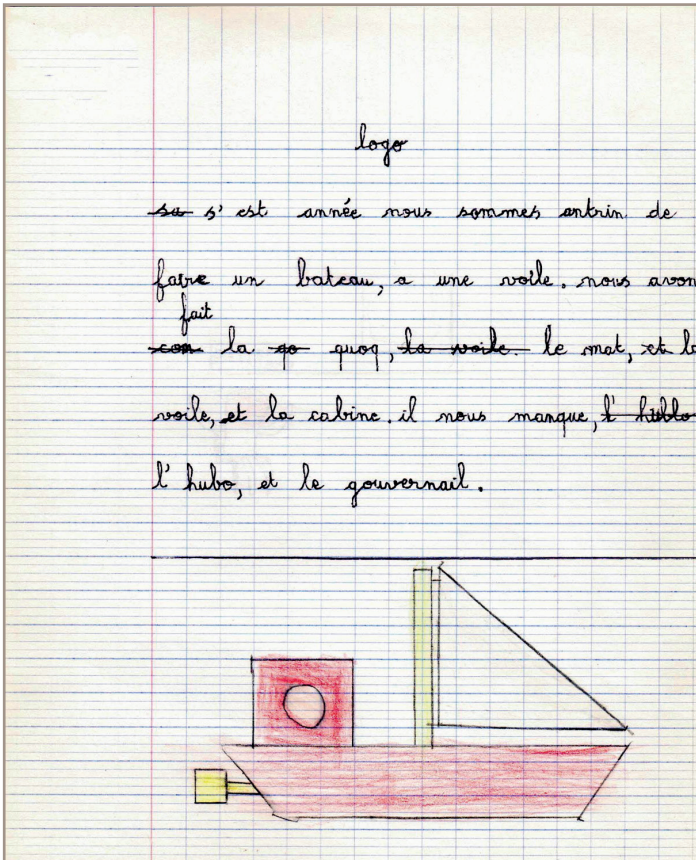 logo
sa s'est année nous sommes antrin de
faire un bateau, a une voile. nous avon
fait
con la qo quoq, la voile. le mat, et la
voile, et la cabine. il nous manque, l'hublo
l'hubo, et le gouvernail.